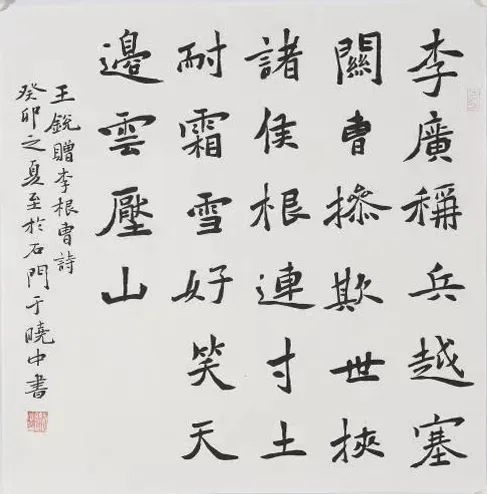 李廣稱兵越塞
關曹摻欺世挾
諸侯根連寸土
耐霜雪好笑天
邊雲壓山
王銳贈李根曹詩
癸卯之夏至於石門于曉中書